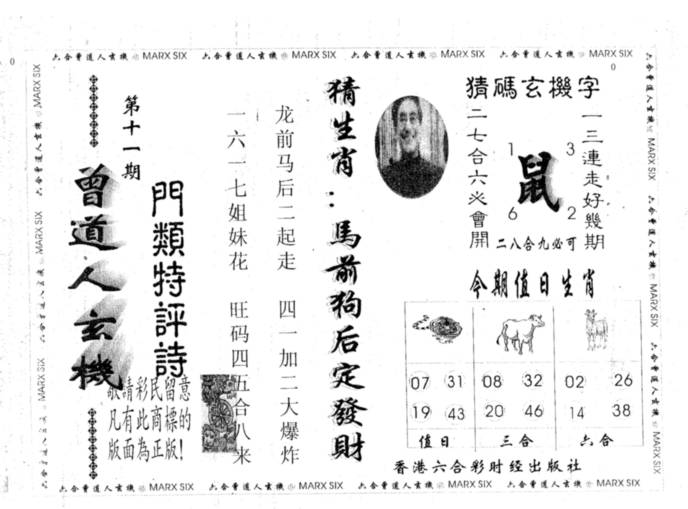 六合曾道人玄機 MARX SIX 六合曾道人玄機 MARX SIX 六合曾道人玄機 MARX SIX 六合曾道人玄機 MARX SIX
第十一期
曾道人玄機
門類特評詩
敬請彩民留意
凡有此商標的
版面為正版!
一六一七姐妹花 旺码四五合八来
龙前马后二起走 四一加二大爆炸
猜生肖：馬前狗后定發財
猜碼玄機字
一三連走好幾期
二七合六必會開
1 3
鼠
6 2
二八合九必可
今期值日生肖
07 31 08 32 02 26
19 43 20 46 14 38
值日 三合 六合
香港六合彩財经出版社
六合曾道人玄機 MARX SIX 六合曾道人玄機 MARX SIX 六合曾道人玄機 MARX SIX 六合曾道人玄機 MARX SIX